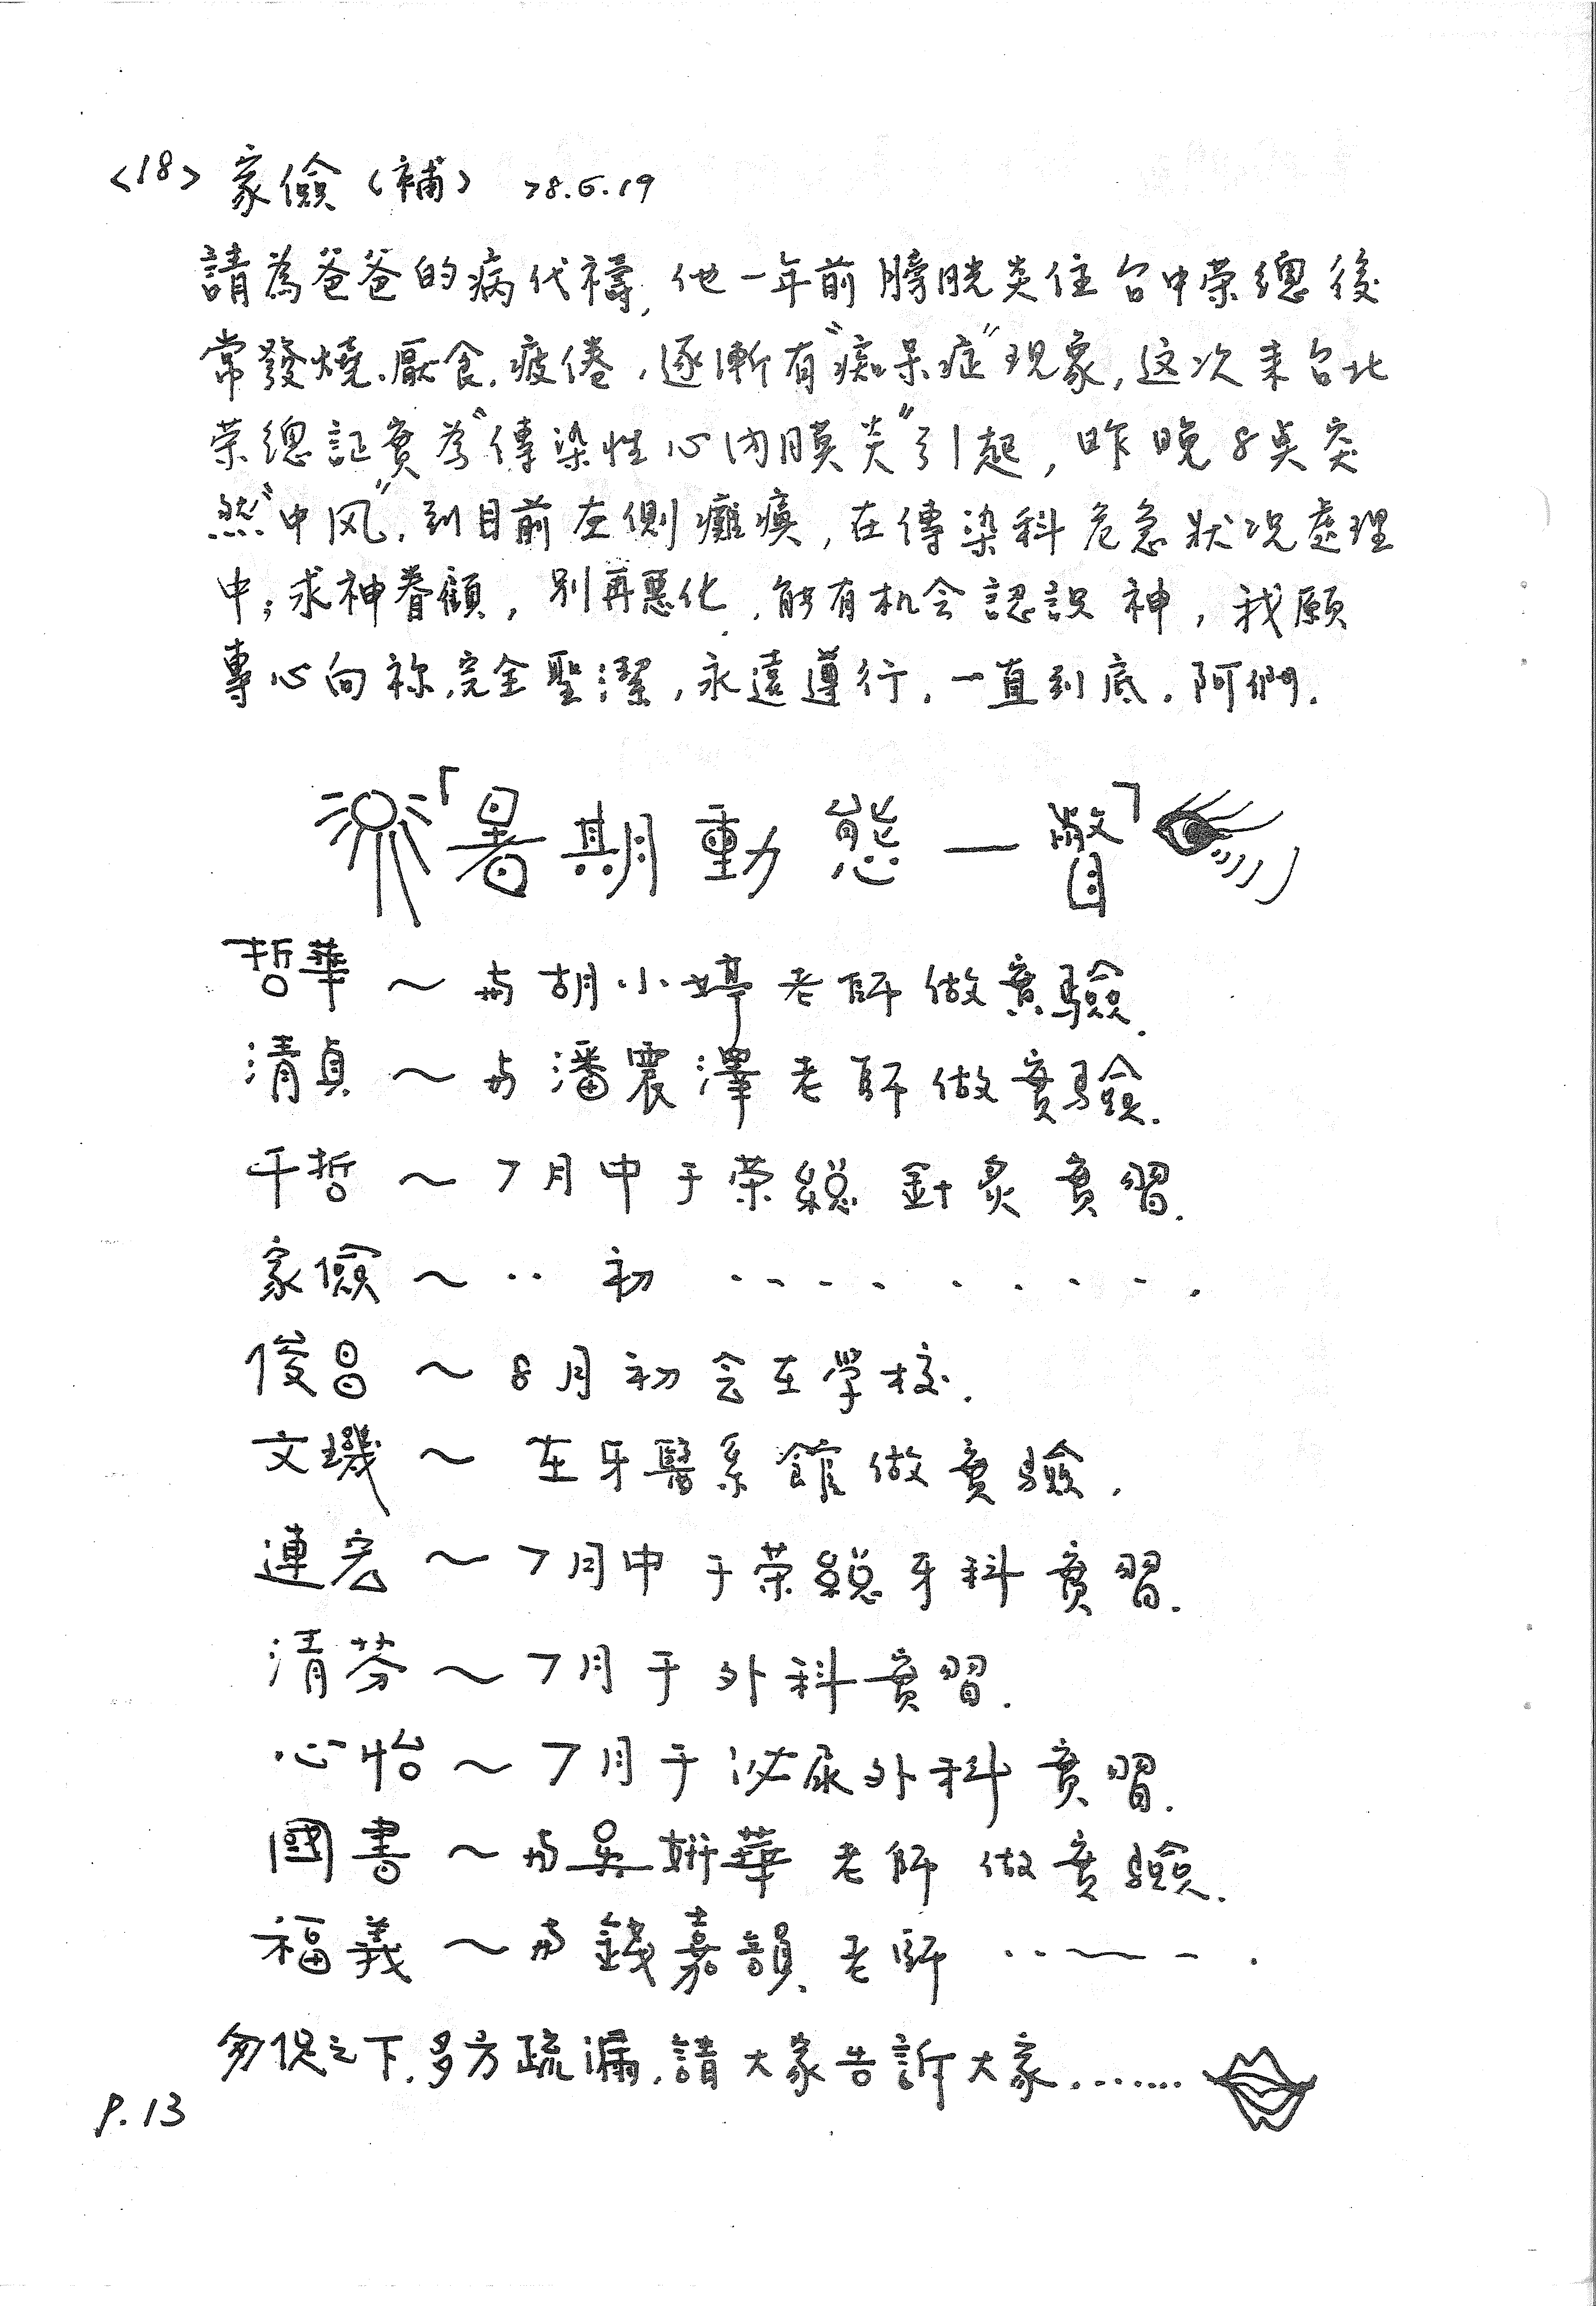 <18> 家儉（補） 78.6.19
請為爸爸的病代禱, 他一年前膀胱炎住台中荣總後
常發燒、厭食、疲倦，逐漸有"痴呆症"現象, 这次来台北
荣總証實為"傳染性心內膜炎"引起, 昨晚8点突
然"中风", 到目前左側癱瘓, 在傳染科危急狀況處理
中; 求神眷顧, 別再惡化, 能有机会認識神, 我願
專心向祢, 完全聖潔, 永遠遵行, 一直到底. 阿們.
「暑期動態一瞥」
哲華～与胡小婷老師做實驗.
清貞～与潘震澤老師做實驗.
千哲～7月中于荣總針炙實習.
家儉～‥初‥‥‥‥.
俊昌～8月初会在學校.
文璣～在牙醫系館做實驗.
連宏～7月中于荣總牙科實習.
清芬～7月于外科實習.
心怡～7月于泌尿外科實習.
國書～与吳妍華老師做實驗.
福義～与錢嘉韻老師‥～－.
匆促之下, 多方疏漏, 請大家告訴大家.......
P.13